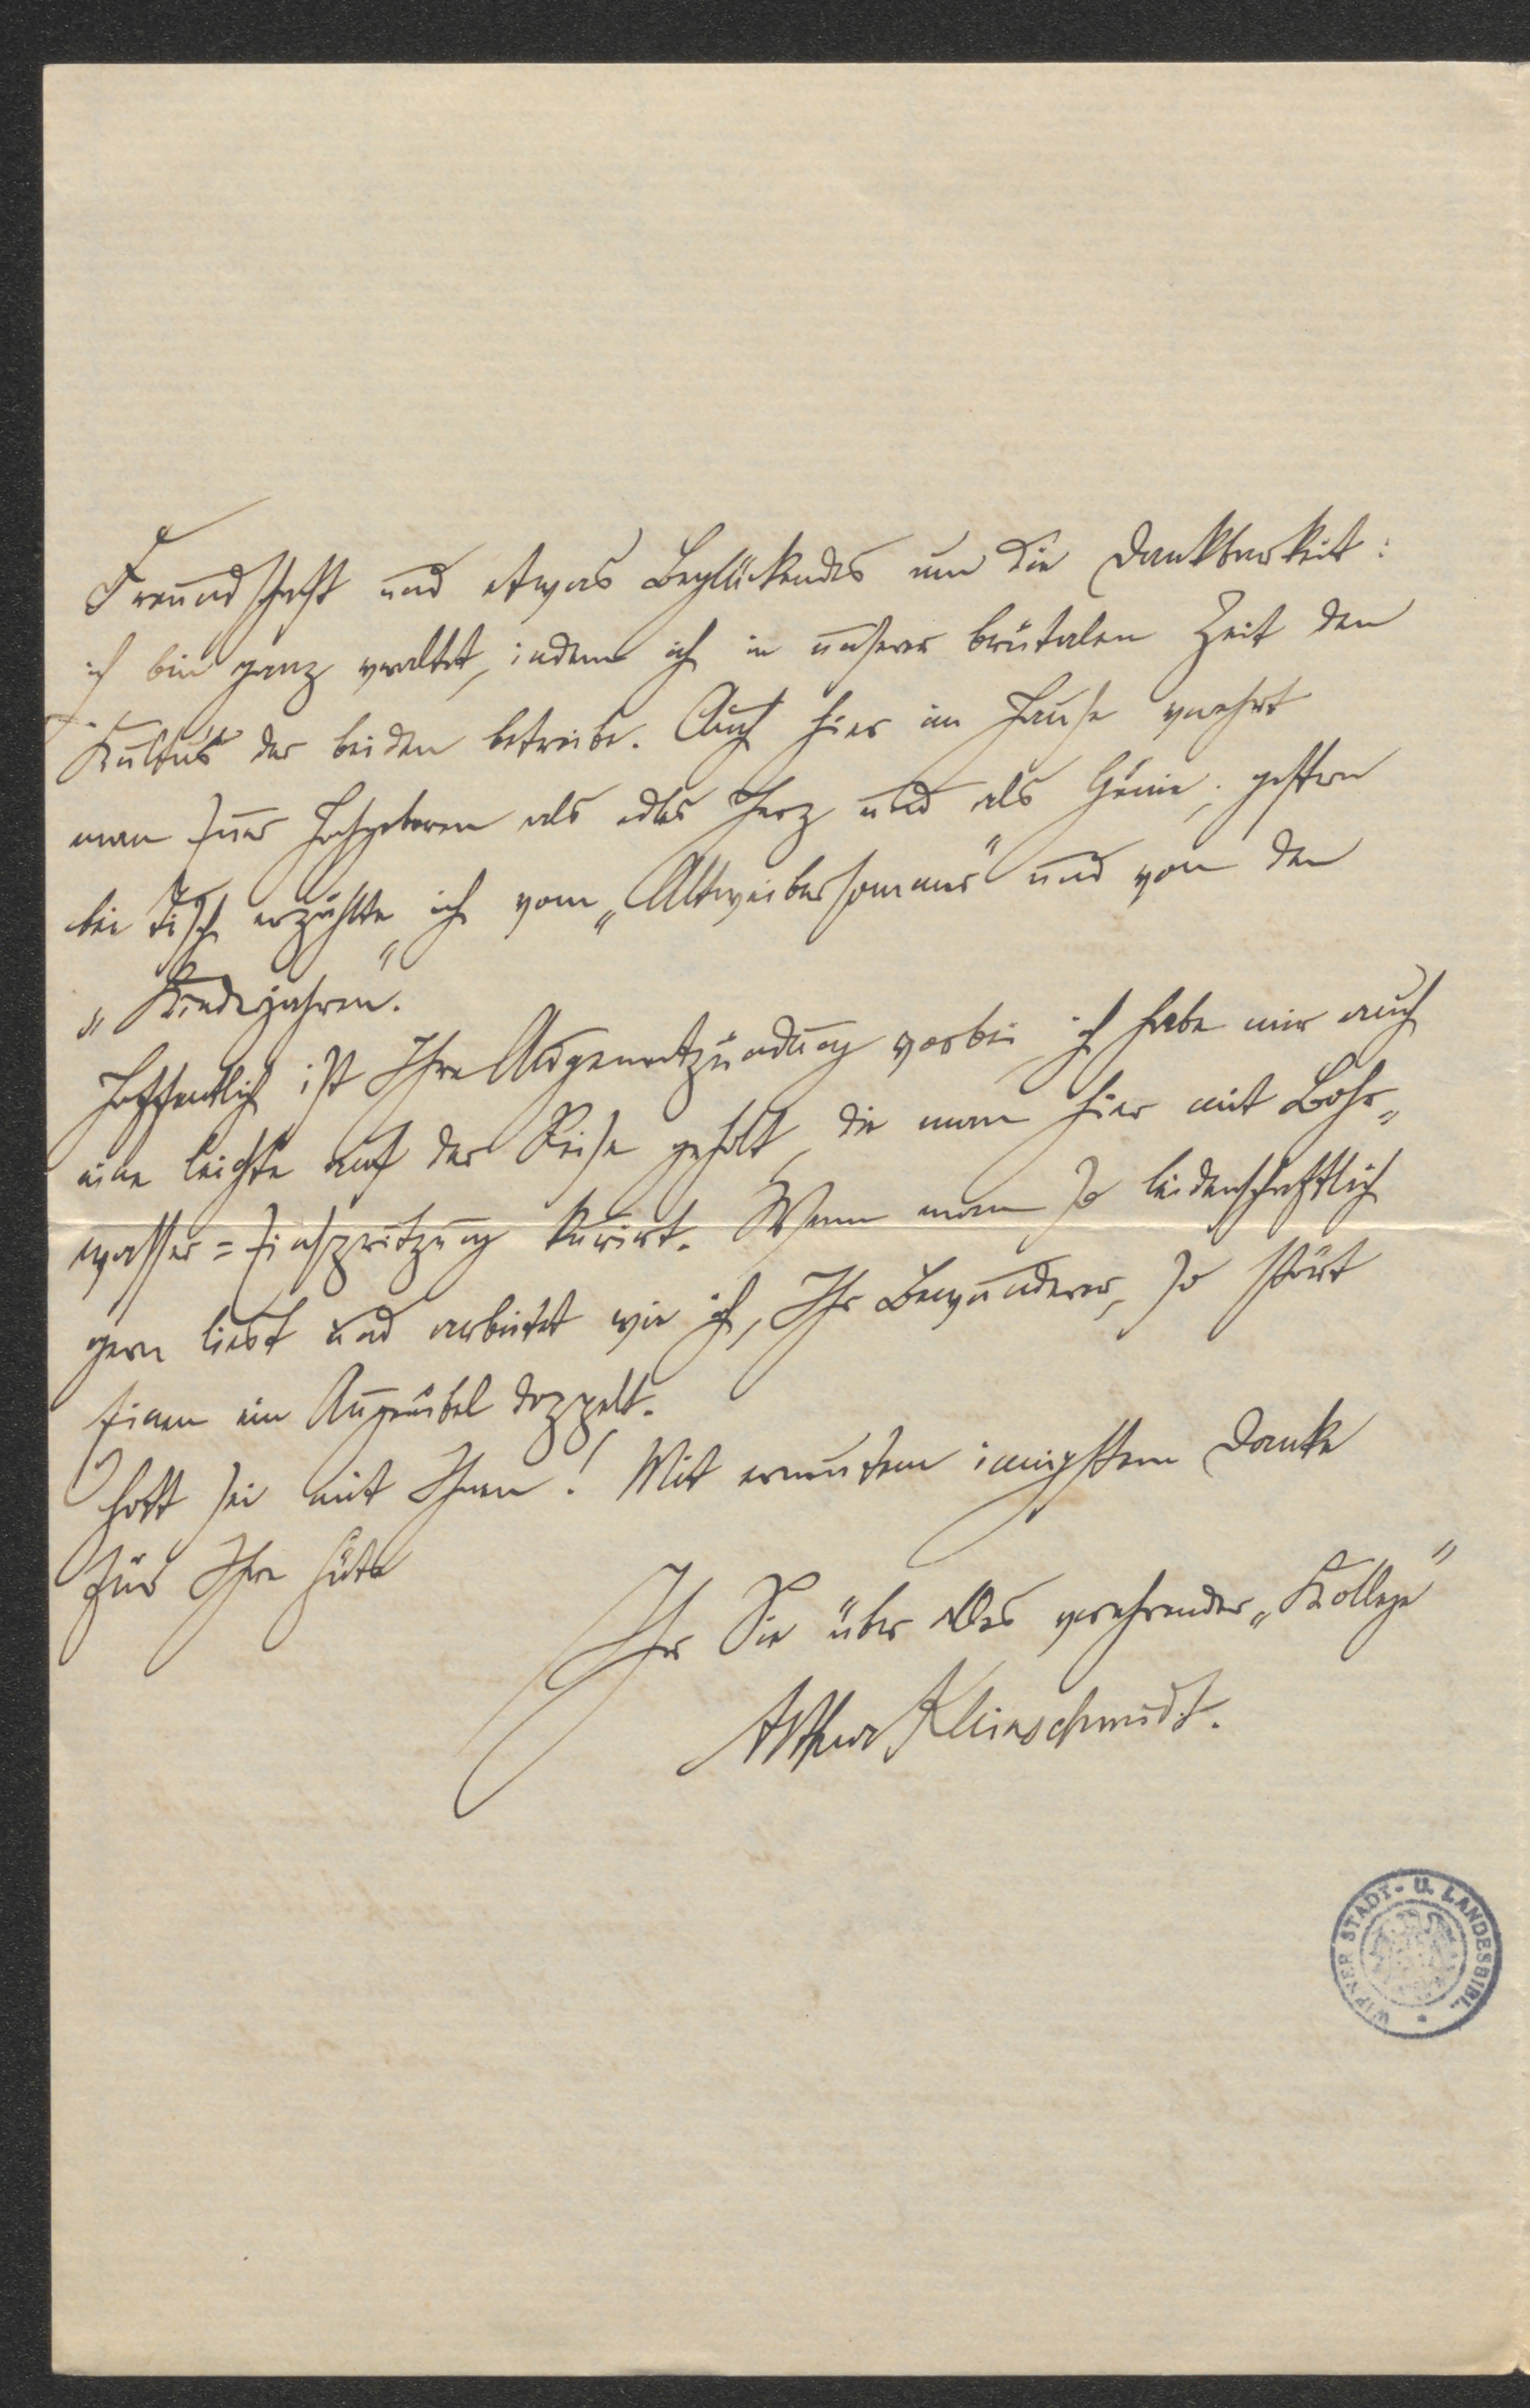 Freundschaft und etwas Beglückendes um die Dankbarkeit:
ich bin ganz veraltet, indem ich in unserer brutalen Zeit den
Kultus der beiden betreibe. Auch hier im Hause verehrt
man Euer Hochgeboren als edles Herz und als Genie; gestern
bei Tisch erzählte ich vom „Altweibersommer" und von den
„Kinderjahren".
Hoffentlich ist Ihre Augenentzündung vorbei, ich habe mir auch
eine leichte auf der Reise geholt, die man hier mit Bohr„
wasser=Einspritzung kurirt. Wenn man so leidenschaftlich
gern liest und arbeitet wie ich, Ihr Bewunderer, so stört
Einen ein Augenübel doppelt.
Gott sei mit Ihnen! Mit erneutem innigstem Danke
für Ihre Güte
Ihr Sie über Alles verehrender „Kollege"
Arthur Kleinschmidt.
WIENER STADT- U. LANDESBIBL.